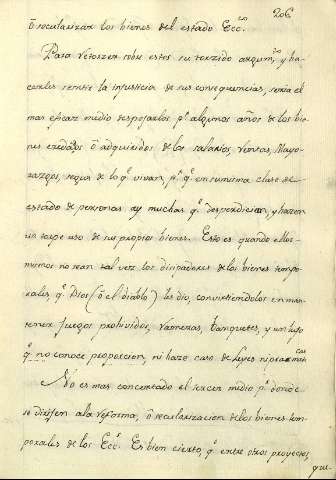 206
ò secularizar los bienes del estado Ecc.co
Para retorzer sobre estos su torzido argum.to y ha-
cerles sentir la injusticia de sus consequencias, seria el
mas eficaz medio despojarlos p.r algunos años de los bie-
nes eredados ò adquiridos de los salarios, rentas, Mayo-
razgos, segun de lo q.e vivan, p.r q.e en su misma clase de
estado de personas ay muchas q.e desperdician, y hazen
un torpe uso de sus propios bienes. Esto es quando ellos
mismos no sean tal vez los disipadores de los bienes tempo-
rales, q.e Dios (ò el diablo) les dio, convirtiendolos en man-
tener Juegos prohividos, rameras, banquetes, y un lujo
q.e no conoce proporcion, ni haze caso de Leyes ni pracmati-cas
No es mas concertado el tercer medio p.r donde
se dirijen a la reforma, ò secularizacion de los bienes tem-
porales de los Ecc.s Es bien cierto, q.e entre otros proyectos,
que